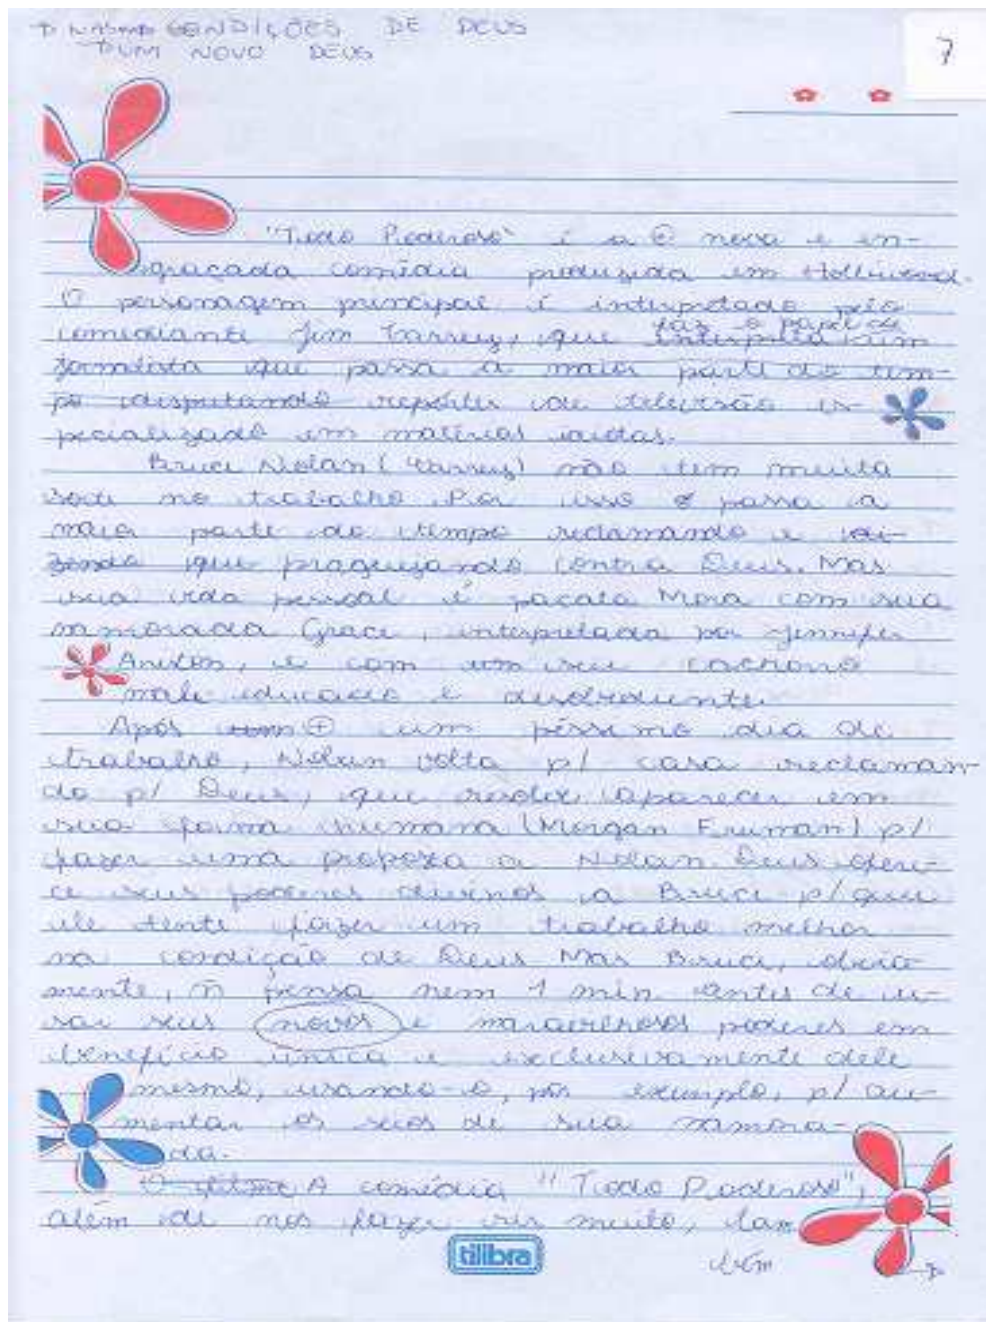 NAS CONDIÇÕES DE DEUS
UM NOVO DEUS
7
"Todo Poderoso" é a + nova e en-
graçada comédia produzida em Hollywood.
O personagem principal é interpretado pelo
comediante Jim Carrey, que interpreta faz o papel de um
jornalista que passa a maior parte do tem-
po disputando repórter de televisão es-
pecializado em matérias idiotas.
Bruce Nolan (Carrey) não tem muita
sorte no trabalho. Por isso passa a
maior parte do tempo reclamando e di-
zendo que praguejando contra Deus. Mas
sua vida pessoal é pacata. Mora com sua
namorada Grace, interpretada por Jennifer
Aniston, e com um seu cachorro
mal educado e desobediente.
Após um + um péssimo dia de
trabalho, Nolan volta p/ casa reclaman-
do p/ Deus, que resolve aparecer em
sua forma humana (Morgan Fruman) p/
fazer uma proposta a Nolan. Deus ofere-
ce seus poderes divinos a Bruce p/ que
ele tente fazer um trabalho melhor
na condição de Deus. Mas Bruce, obvia-
mente, ñ pensa nem 1 min. antes de u-
sar seus novos e maravilhosos poderes em
benefício única e exclusivamente dele
mesmo, usando-o, por exemplo, p/ au-
mentar os seios de sua namora-
da.
O filme A comédia "Todo Poderoso",
além de nos fazer rir muito, tam
bém
tilibra